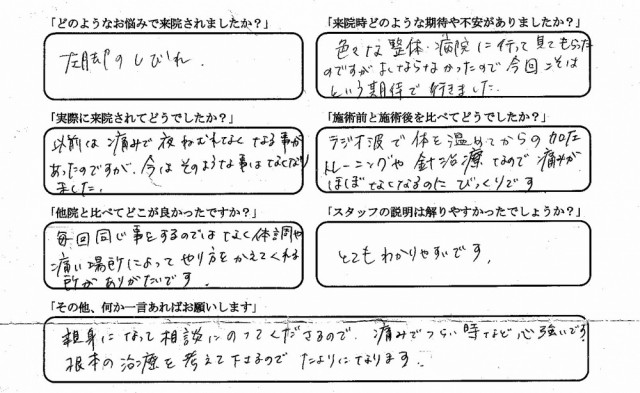 「どのようなお悩みで来院されましたか？」
左脚のしびれ.
「来院時どのような期待や不安がありましたか？」
色々な整体・病院に行って見てもらった
のですがよくならなかったので今回こそは
という期待で行きました.
「実際に来院されてどうでしたか？」
以前は痛みで夜ねむれなくなる事が
あったのですが、今はそのような事はなくなり
ました.
「施術前と施術後を比べてどうでしたか？」
ラジオ波で体を温めてからの加圧
トレーニングや針治療なので痛みが
ほぼなくなるのにびっくりです
「他院と比べてどこが良かったですか？」
毎回同じ事をするのではなく体調や
痛い場所によってやり方をかえてくれる
所がありがたいです.
「スタッフの説明は解りやすかったでしょうか？」
とてもわかりやすいです.
「その他、何か一言あればお願いします」
親身になって相談にのってくださるので、痛みでつらい時など心強いです
根本の治療を考えて下さるのでたよりになります.